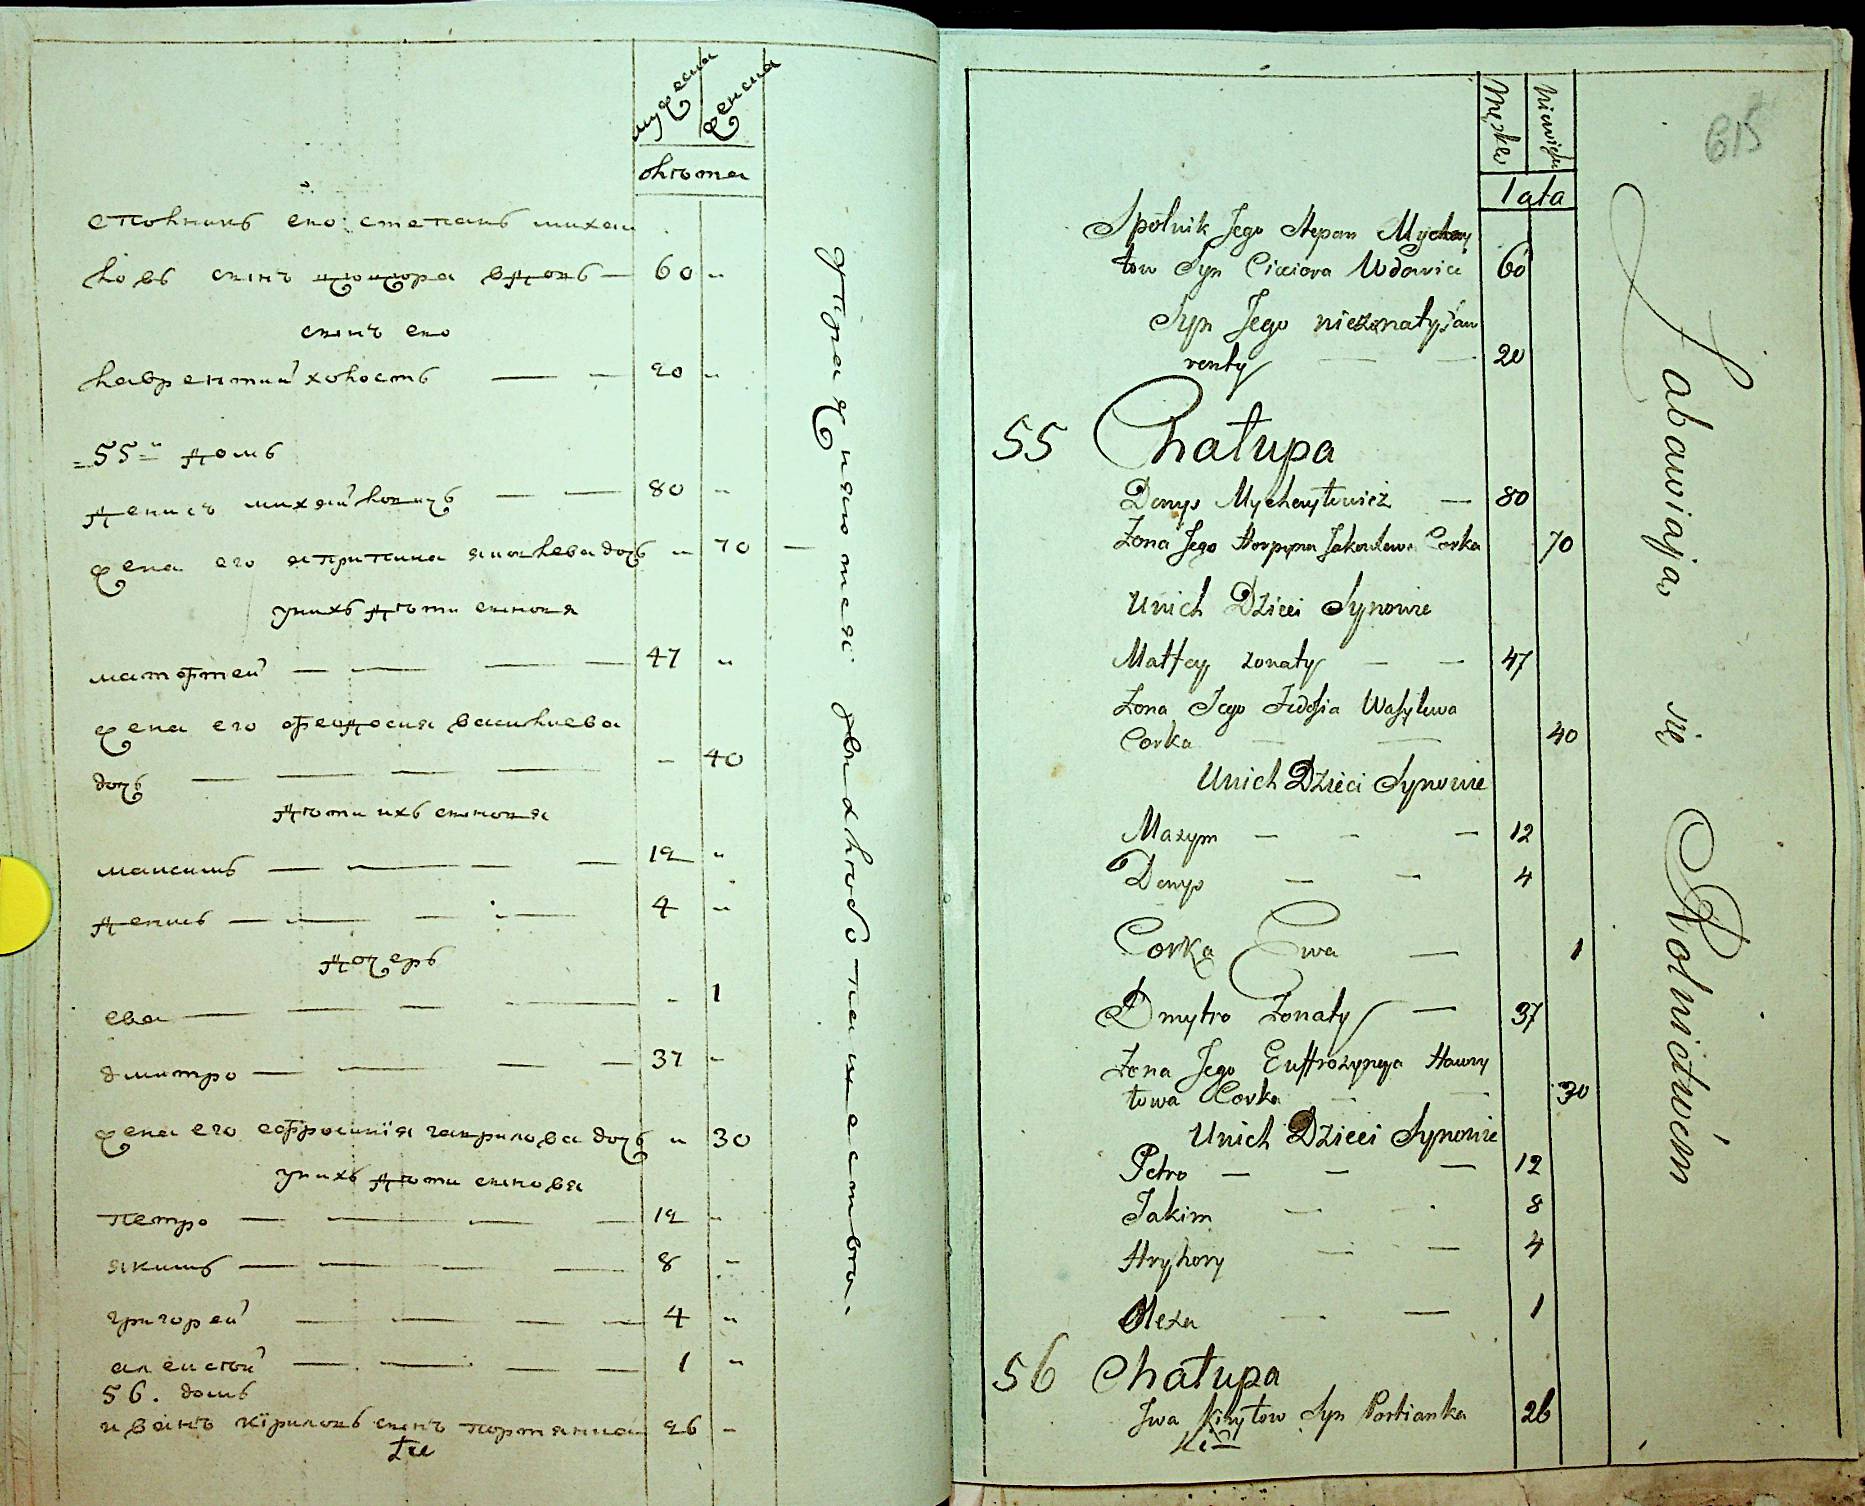 мужеска
женска
лѣта
сполникъ его степанъ михаи
ловъ синъ цюцюра вдовъ — 60 "
синъ его
лаврентий холостъ — — 20 "
55 домъ
денисъ михайловичъ — — 80 "
жена его агрипина яковлева дочъ " 70
унихъ дѣти синовя
матфтей — — — — 47 "
жена его феодосия василиева
дочъ — — — — - 40
дѣти ихъ синовя
максимъ — — — — 12 "
денисъ — — — — 4 "
дочеръ
ева — — — - 1
дмитро — — — — 37 -
жена его ефросинїя гаврилова дочъ " 30
унихъ дѣти синовя
петро — — — — 12 -
якимъ — — — — 8 -
григорей — — — — 4 "
алексѣй — — — — 1 "
56. домъ
иванъ кїриловъ синъ портянка 26 -
упражняются
у
хлѣбопашества.
615
Męzkey
niewiey
lata
Spolnik Jego Stepan Mychay
łow Syn Ciuciora Wdowiec 60
Syn Jego nieżonaty Ław
renty — — 20
55 Chałupa
Denys Mychayłowicz — 80
Żona Jego Horpyna Jakowlewa Corka 70
Unich Dzieci Synowie
Mattey żonaty — — 47
Żona Jego Fedosia Wasylewa
Corka — — 40
Unich Dzieci Synowie
Maxym — - — 12
Denys — — 4
Corka Ewa — 1
Dmytro Żonaty — 37
Żona Jego Euffrozynya Hawry
łowa Corka — — 30
Unich Dzieci Synowie
Petro — — — 12
Jakim — - 8
Hryhory — — 4
Olexa - — 1
56 Chałupa
Iwa Kiryłow Syn Portianka 26
Zabawiają się Rolnictwem